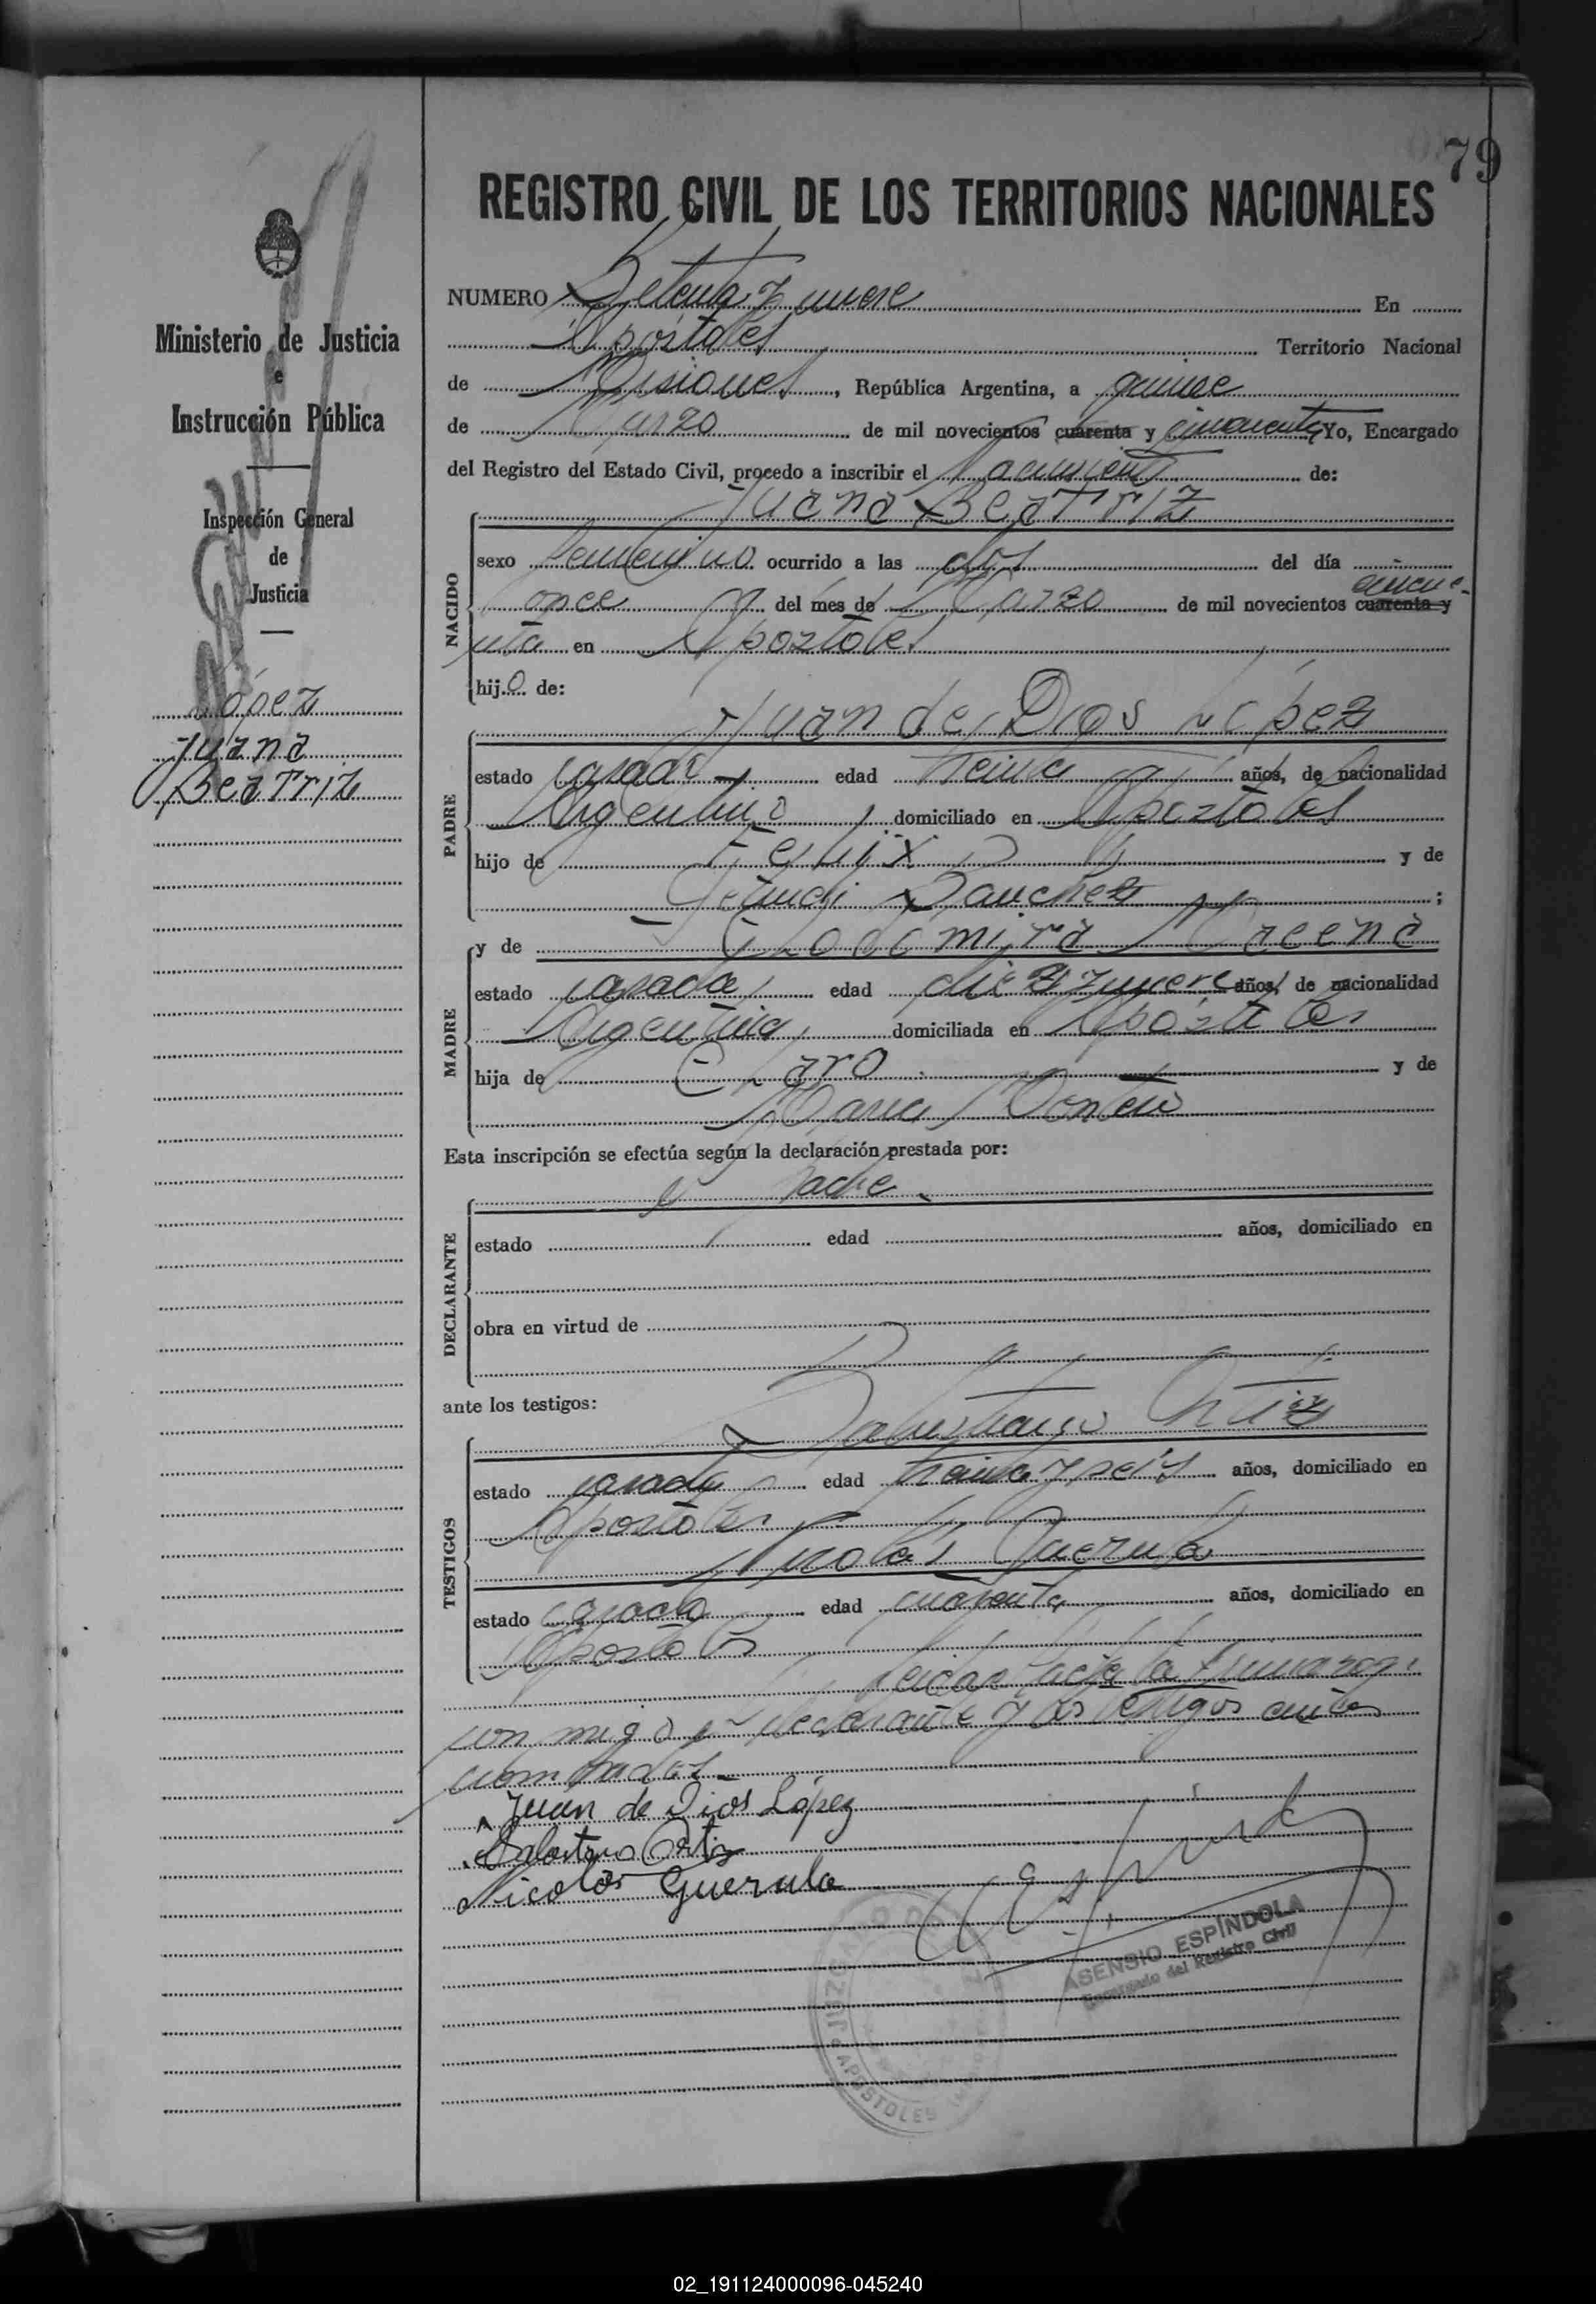 79
REGISTRO CIVIL DE LOS TERRITORIOS NACIONALES
Ministerio de Justicia
e
Instrucción Pública
Inspección General
de
Justicia
López
Juana
Beatriz
NUMERO Setenta y nueve En
Apostoles Territorio Nacional
de Misiones, República Argentina, a quince
de Marzo de mil novecientos cuarenta y cincuenta Yo, Encargado
del Registro del Estado Civil, procedo a inscribir el Nacimiento de:
Juana Beatriz
NACIDO
sexo femenino ocurrido a las del día
once del mes de Marzo de mil novecientos cuarenta y cincue
nta en Apostoles
hij.o de:
Juan de Dios López
PADRE
estado casado edad treinta años, de nacionalidad
Argentino domiciliado en Apostoles
hijo de y de
Sanchez ;
y de Clodomira
MADRE
estado casada edad diez y nueve años, de nacionalidad
Argentina domiciliada en Apostoles
hija de y de
Maria
Esta inscripción se efectúa según la declaración prestada por:
el padre
DECLARANTE
estado edad años, domiciliado en
obra en virtud de
ante los testigos:
Ortiz
TESTIGOS
estado casado edad treinta y seis años, domiciliado en
Apostoles
Nicolas Guerula
estado casado edad cuarenta años, domiciliado en
Apostoles
Leida el acta la firmaron
con migo el declarante y los testigos antes
nombrados
Juan de Dios López
Ortiz
Nicolás Guerula
ASENSIO ESPÍNDOLA
Encargado del Registro Civil
JUZGADO DE PAZ
APOSTOLES
02_191124000096-045240